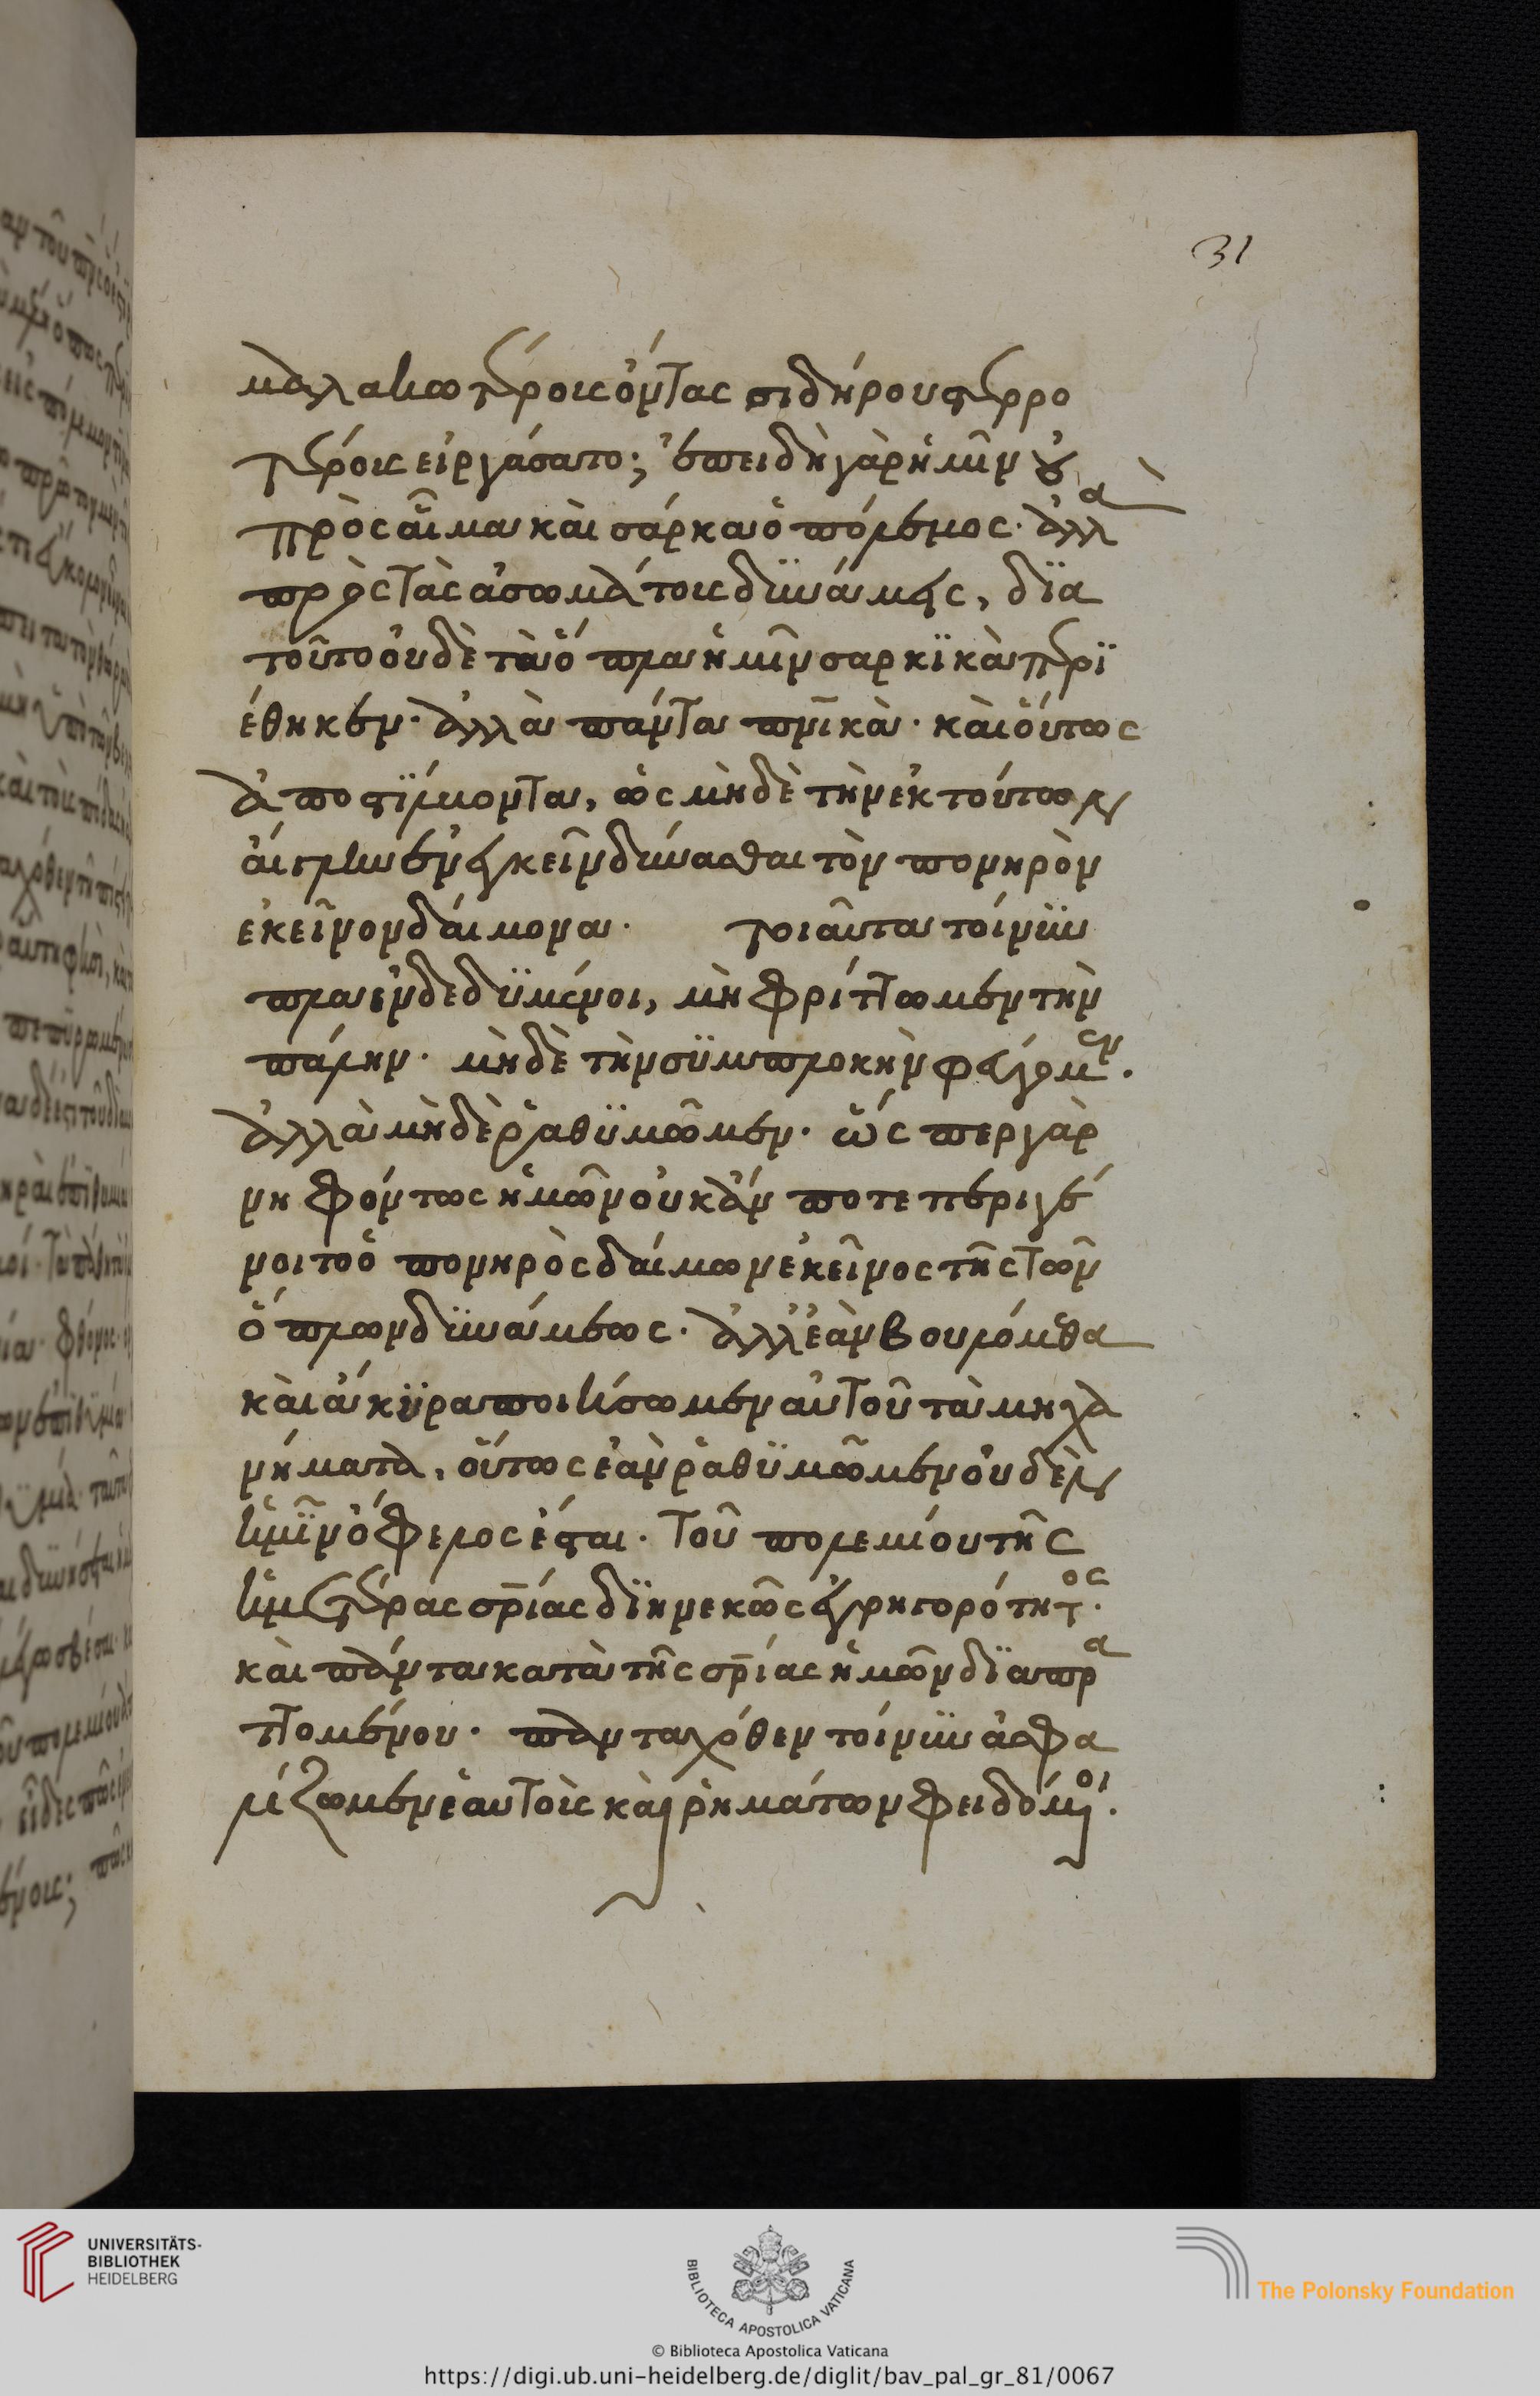 31
μαλακωτέρους ὄντας σιδήρου στερρο
τέρους εἰργάσατο; ἐπειδὴ γὰρ ἡμῖν οὐ
πρὸς αἷμα καὶ σάρκα ὁ πόλεμος· ἀλλὰ
πρὸς τὰς ἀσωμάτους δυνάμεις, δϊα
τοῦτο οὐδὲ τὰ ὅπλα ἡμῖν σαρκϊκὰ περϊ
έθηκεν· ἀλλὰ πάντα πνικὰ· καὶ οὕτως
ἀποστίλβοντα, ὡς μὴδὲ τὴν ἐκ τούτων
αἴγλην ἐνεγκεῖν δύνασθαι τὸν πονηρὸν
ἐκεῖνον δαίμονα· τοιαῦτα τοίνϋν
ὅπλα ἐνδεδϋμένοι, μὴ φρίττωμεν τὴν
πάλην· μὴδὲ τὴν σϋμπλοκὴν φεύγωμεν.
ἀλλὰ μὴδὲ ῥαθϋμῶμεν· ὥσπερ γὰρ
νηφόντως ἡμῶν οὐκ ἄν ποτε περιγέ
νοιτο ὁ πονηρὸς δαίμων ἐκεῖνος τῆς τῶν
ὅπλων δϋνάμεως· ἀλλ' ἐὰν βουλόμεθα
καὶ ἄκϋρα ποιήσωμεν αὐτοῦ τὰ μηχα
νήματα, οὕτως ἐὰν ῥαθϋμῶμεν οὐδὲν
ἡμῖν ὄφελος ἔσται· τοῦ πολεμίου τῆς
ἡμετέρας σρίας δϊηνεκῶς ἐγρηγορότητος·
καὶ πάντα κατὰ τῆς σρίας ἡμῶν δϊαπρα
ττομένου· πανταχόθεν τοίνϋν ἀσφα
λίζωμεν ἑαυτοὺς καὶ ῥημάτων φειδόμενοι.
UNIVERSITÄTS-
BIBLIOTHEK
HEIDELBERG
BIBLIOTECA APOSTOLICA VATICANA
The Polonsky Foundation
© Biblioteca Apostolica Vaticana
https://digi.ub.uni-heidelberg.de/diglit/bav_pal_gr_81/0067